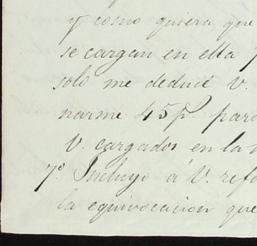 y como quiera que
se cargan en ella
solo me deduce V.
narme 45 p^s para
V. cargados en la
7º. Incluyo á V. refe
la equivocacion que